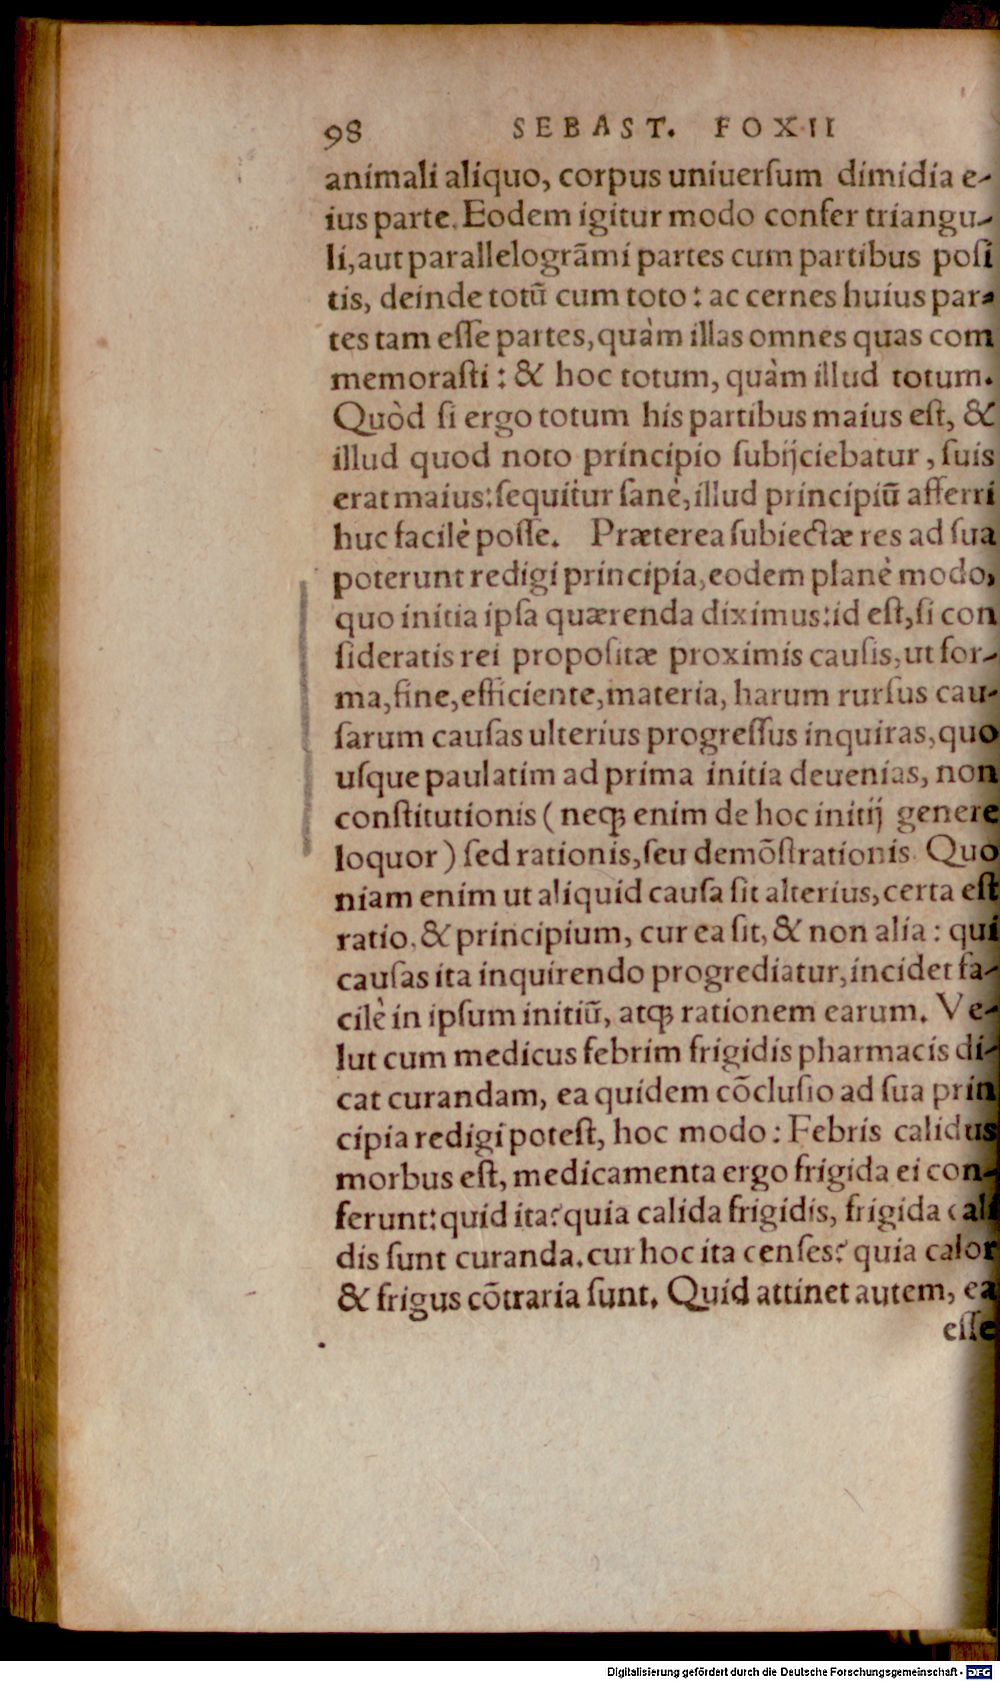 98 SEBAST. FOXII
animali aliquo, corpus uniuerſum dimidia e-
ius parte. Eodem igitur modo confer triangu-
li, aut parallelogrãmi partes cum partibus poſi
tis, deinde totũ cum toto: ac cernes huius par-
tes tam eſſe partes, quàm illas omnes quas com
memoraſti: & hoc totum, quàm illud totum.
Quòd ſi ergo totum his partibus maius eſt, &
illud quod noto principio ſubijciebatur, ſuis
erat maius: ſequitur ſanè, illud principiũ afferri
huc facilè poſſe. Præterea ſubiectæ res ad ſua
poterunt redigi principia, eodem planè modo,
quo initia ipſa quærenda diximus: id eſt, ſi con
ſideratis rei propoſitæ proximis cauſis, ut for-
ma, fine, efficiente, materia, harum rurſus cau-
ſarum cauſas ulterius progreſſus inquiras, quo
uſque paulatim ad prima initia deuenias, non
conſtitutionis (neqꝫ enim de hoc initij genere
loquor) ſed rationis, ſeu demõſtrationis. Quo
niam enim ut aliquid cauſa ſit alterius, certa eſt
ratio, & principium, cur ea ſit, & non alia: qui
cauſas ita inquirendo progrediatur, incidet fa-
cilè in ipſum initiũ, atqꝫ rationem earum. Ve-
lut cum medicus febrim frigidis pharmacis di-
cat curandam, ea quidem cõcluſio ad ſua prin
cipia redigi poteſt, hoc modo: Febris calidus
morbus eſt, medicamenta ergo frigida ei con-
ferunt: quid ita? quia calida frigidis, frigida cali
dis ſunt curanda. cur hoc ita cenſes? quia calor
& frigus cõtraria ſunt. Quid attinet autem, ea
eſſe
Digitalisierung gefördert durch die Deutsche Forschungsgemeinschaft - DFG